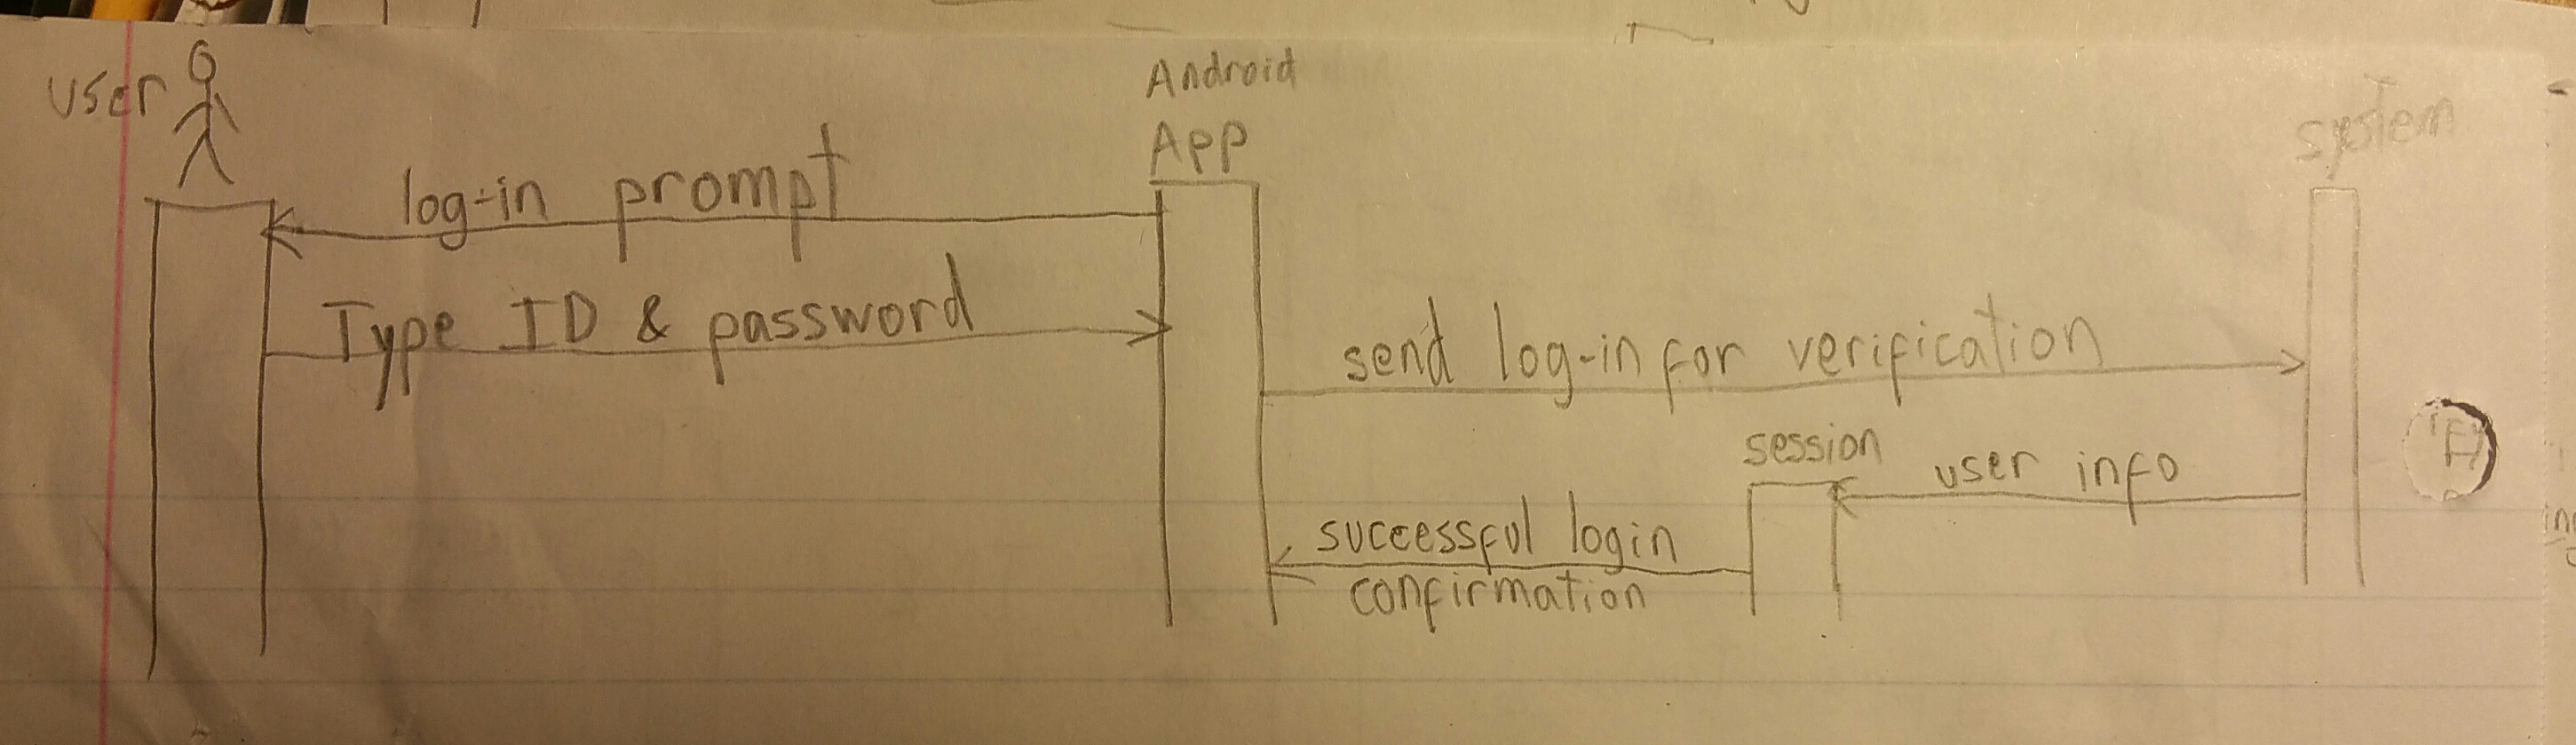 user
Android
App
system
log-in prompt
Type ID & password
send log-in for verification
session
user info
successful login
confirmation